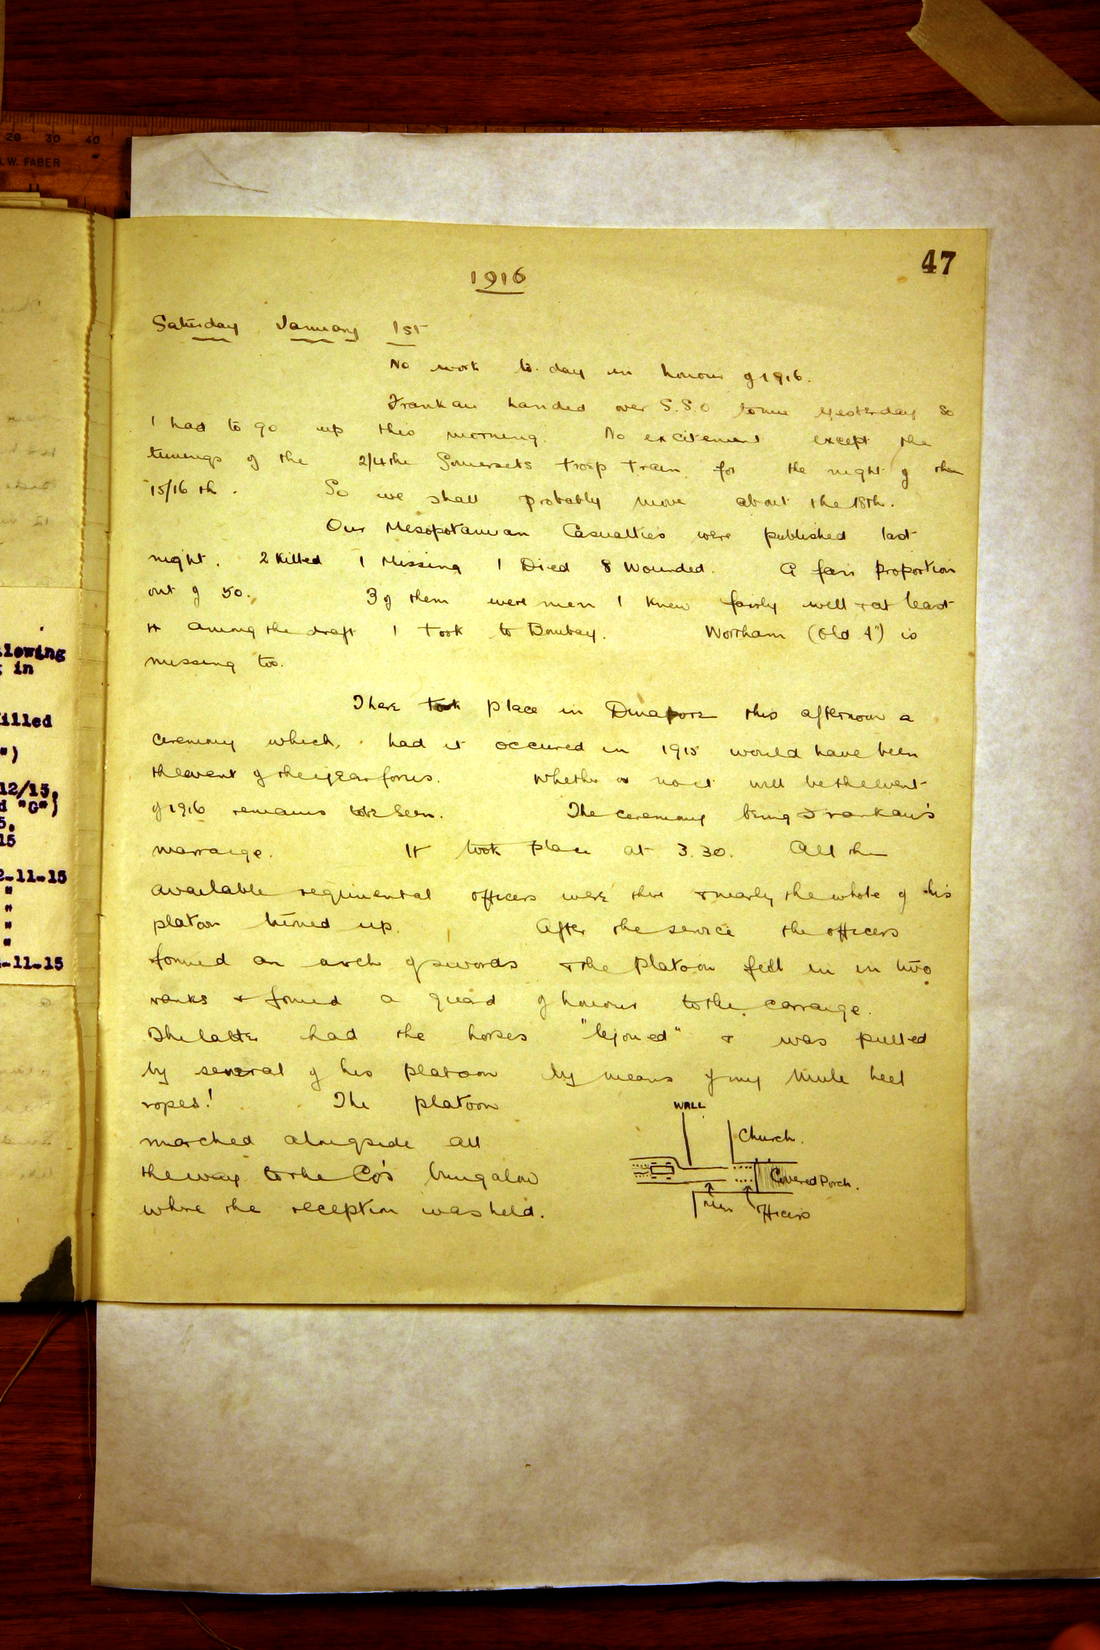 20 30 40
W. FABER
47
1916
Saturday January 1st
No work to-day in honour of 1916.
Frankau handed over S.S.O to me yesterday so
I had to go up this morning. No excitement except the
timings of the 2/4th Somersets troop train for the night of the
15/16 th. So we shall probably move about the 18th.
Our Mesopotamian Casualties were published last
night. 2 Killed 1 Missing 1 Died 8 Wounded. A fair proportion
out of 50. 3 of them were men I knew fairly well & at least
4 among the draft I took to Bombay. Wortham (Old "A") is
missing too.
There took place in Dinapore this afternoon a
ceremony which, had it occured in 1915 would have been
the event of the year for us. Whether or not it will be the event
of 1916 remains to be seen. The ceremony being Frankau's
marraige. It took place at 3.30. All the
available regimental officers were there & nearly the whole of his
platoon turned up. After the service the officers
formed an arch of swords & the platoon fell in in two
ranks & formed a guard of honour to the carraige.
The latter had the horses & was pulled
by several of his platoon by means of my mule heel
ropes! The platoon
marched alongside all
the way to the Co's bungalow
where the reception was held.
WALL
Church.
Covered Porch.
men
officers
llowing
in
illed
")
12/15,
d "G")
5,
15
2-11-15
"
"
"
"
-11-15